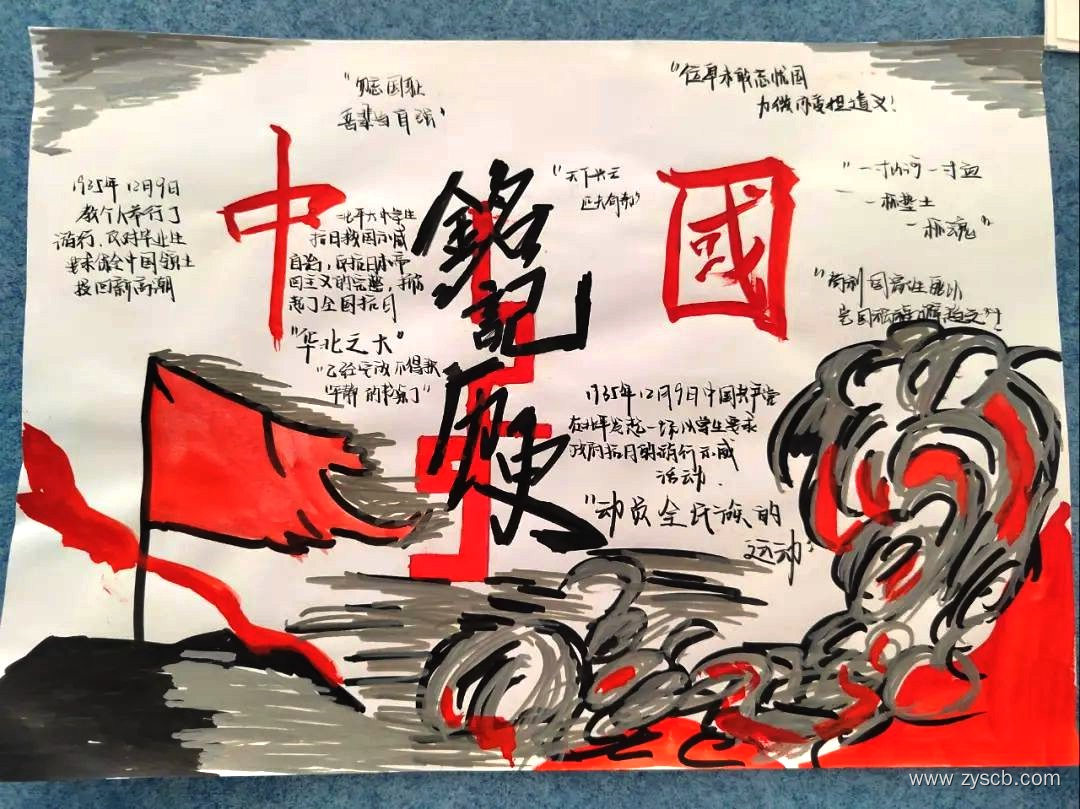 "勿忘国耻
吾辈当自强"
"位卑未敢忘忧国
中
國
銘記
历史
"天下兴亡
匹夫有责"
"一寸山河一寸血
一抔热土
一抔魂"
1935年12月9日
数千人举行了
游行、反对华业生
要求保全中国领土
北平大中学生
抗日救国示威
自治,反抗日本帝
国主义的完整,掀
起了全国抗日
"华北之大"
"已经安放不得我
平静的书桌了"
1935年12月9日中国共产党
在北平发起一场以学生要求
政府抗日的游行示威
活动.
"动员全民族的
运动"
www.zyscb.com